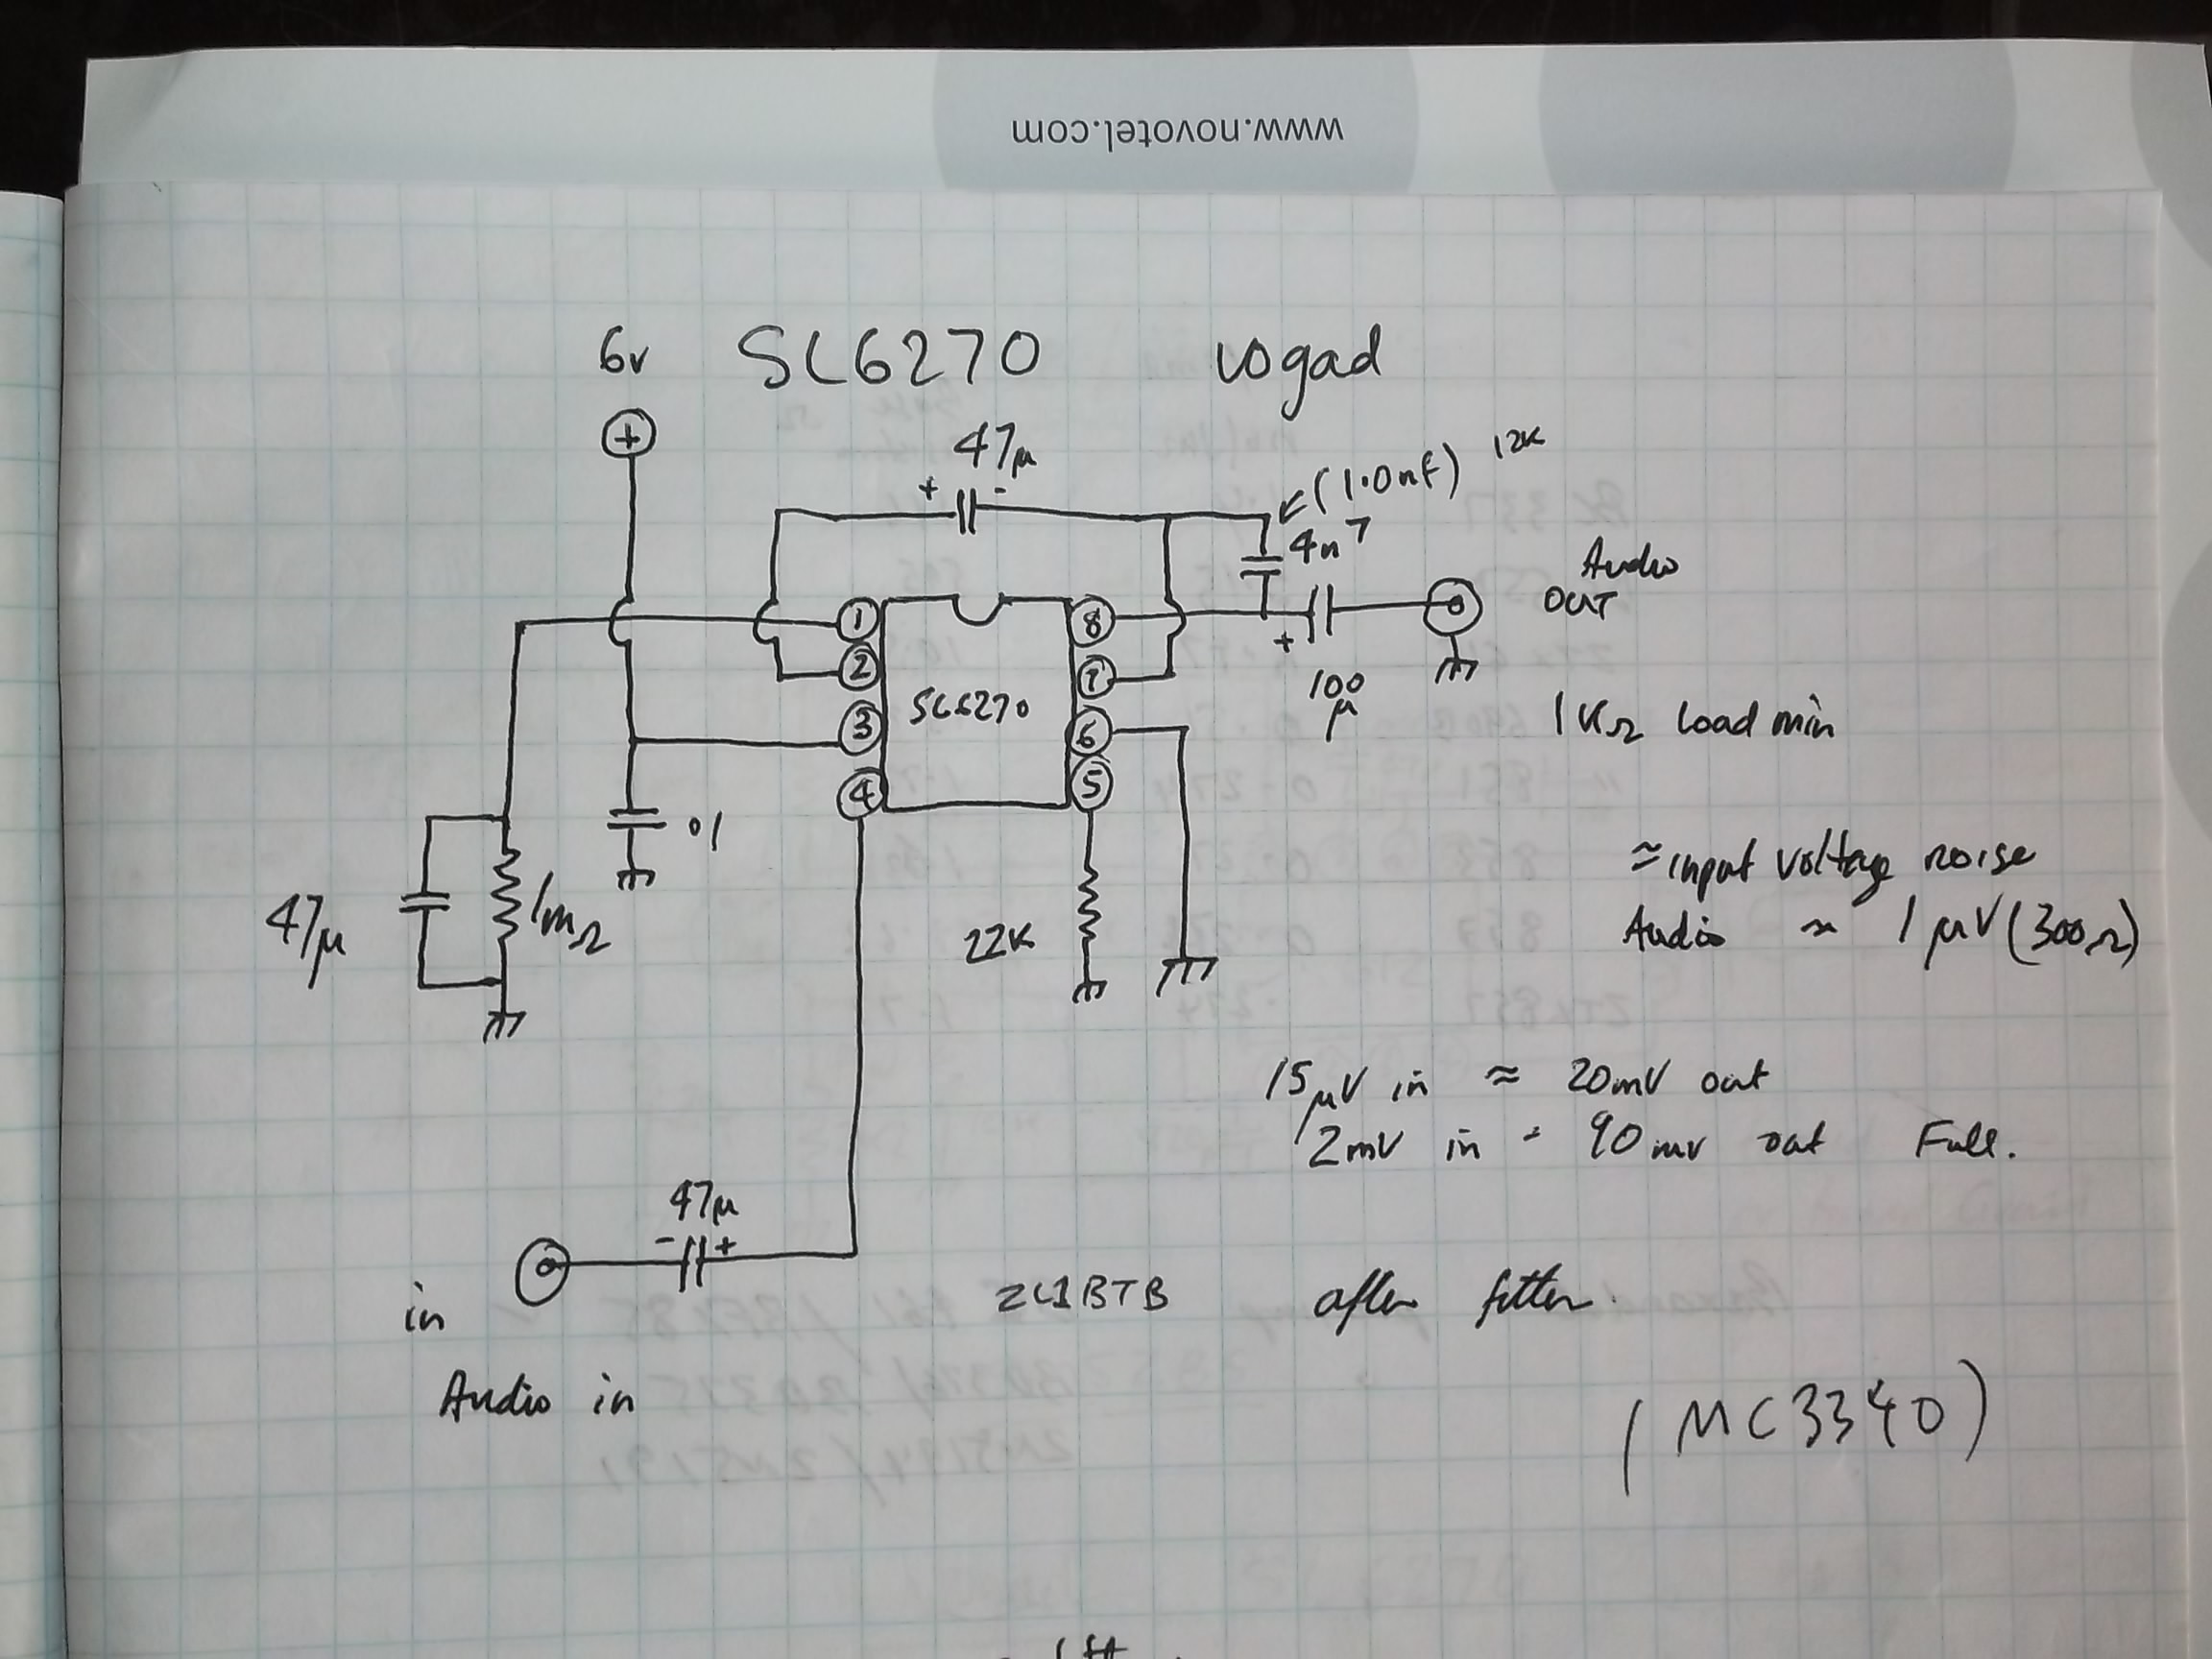 www.novotel.com
6v SL6270 vogad
47µ
+ -
(1.0nf) 12K
4n7
Audio
OUT
1 8
2 7
3 6
4 5
SL6270
+
100
µ
1KΩ Load min
01
47µ
1mΩ
22K
≈ input voltage noise
Audio ≈ 1µV (300Ω)
15µV in ≈ 20mV out
2mV in = 90mv out Full.
47µ
- +
in
ZL1BTB after filter.
Audio in
(MC3340)